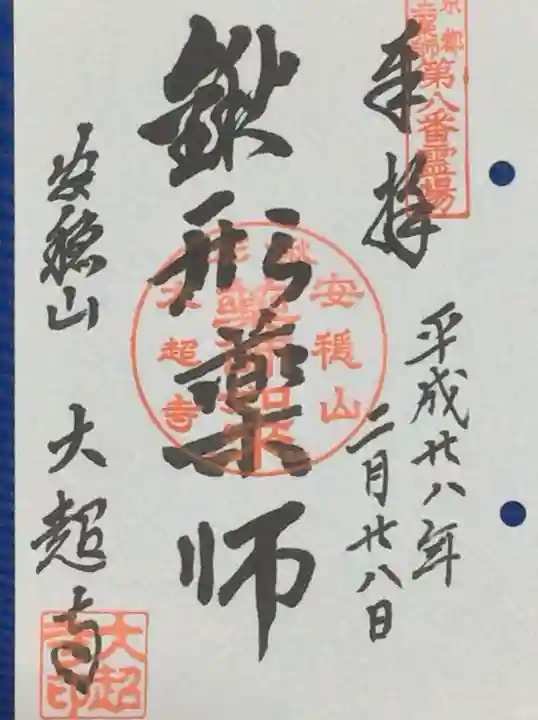 奉拝
京都
十二薬師第八番霊場
平成廿八年
二月廿八日
鍬形薬師
安穏山
大超寺
安穏山 大超寺
大超寺印